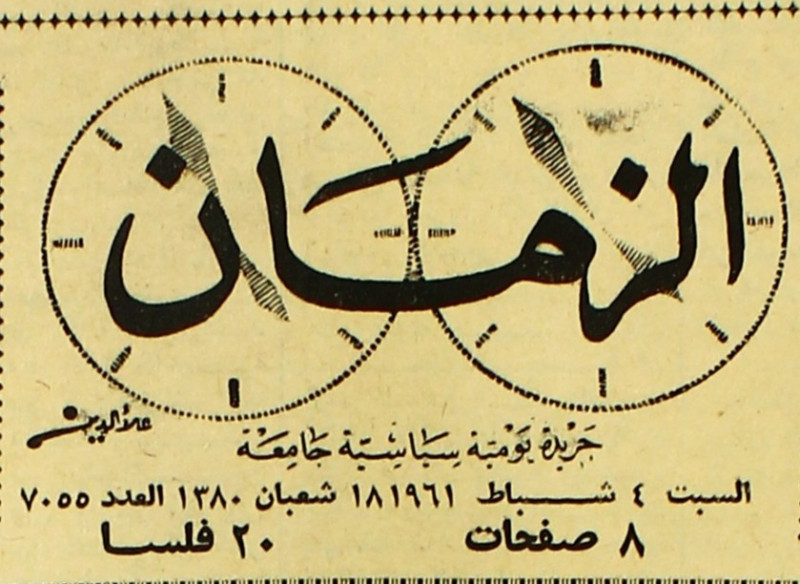 الزمان
علاء الدين
جريدة يومية سياسية جامعة
السبت ٤ شباط ١٩٦١ ١٨ شعبان ١٣٨٠ العدد ٧٠٥٥
٨ صفحات ٢٠ فلسا